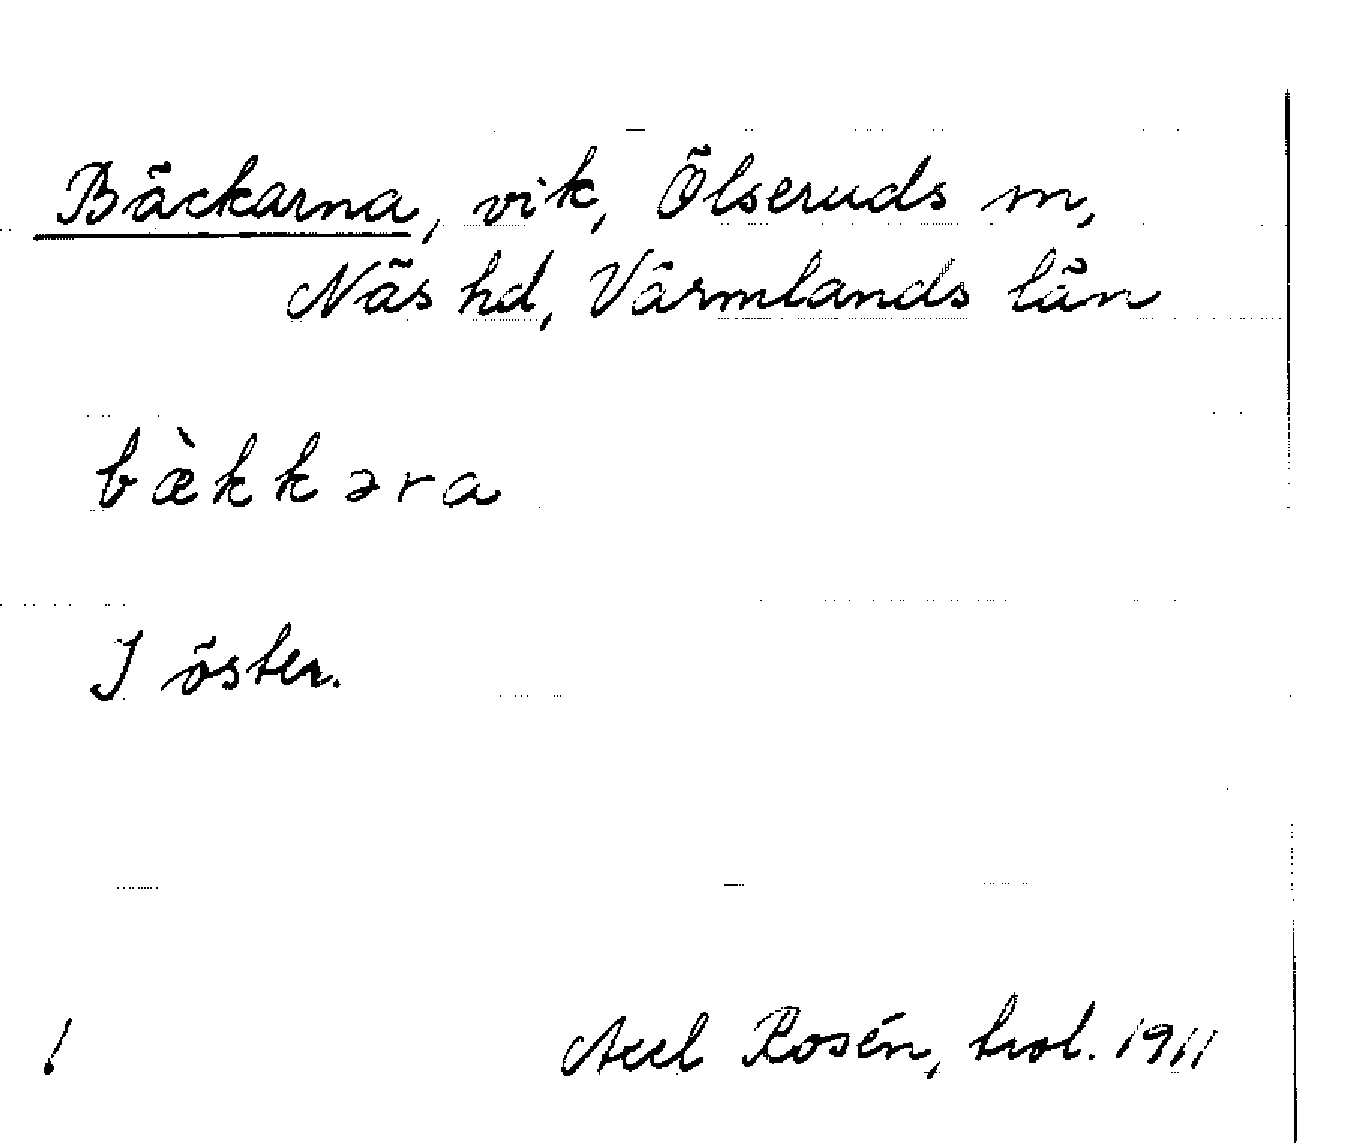 Bäckarna, vik, Ölseruds sn,
Näs hd, Värmlands län
bæ̀kkəra
I öster.
1
Axel Rosén, trol. 1911